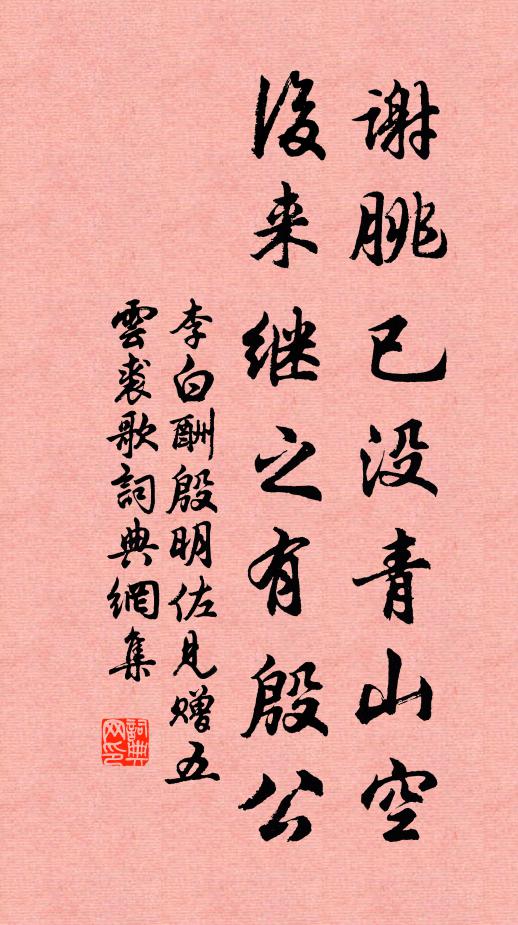 谢朓已没青山空
後来继之有殷公
李白酬殷明佐见赠五
雲裘歌詞典網集
詞典
网印